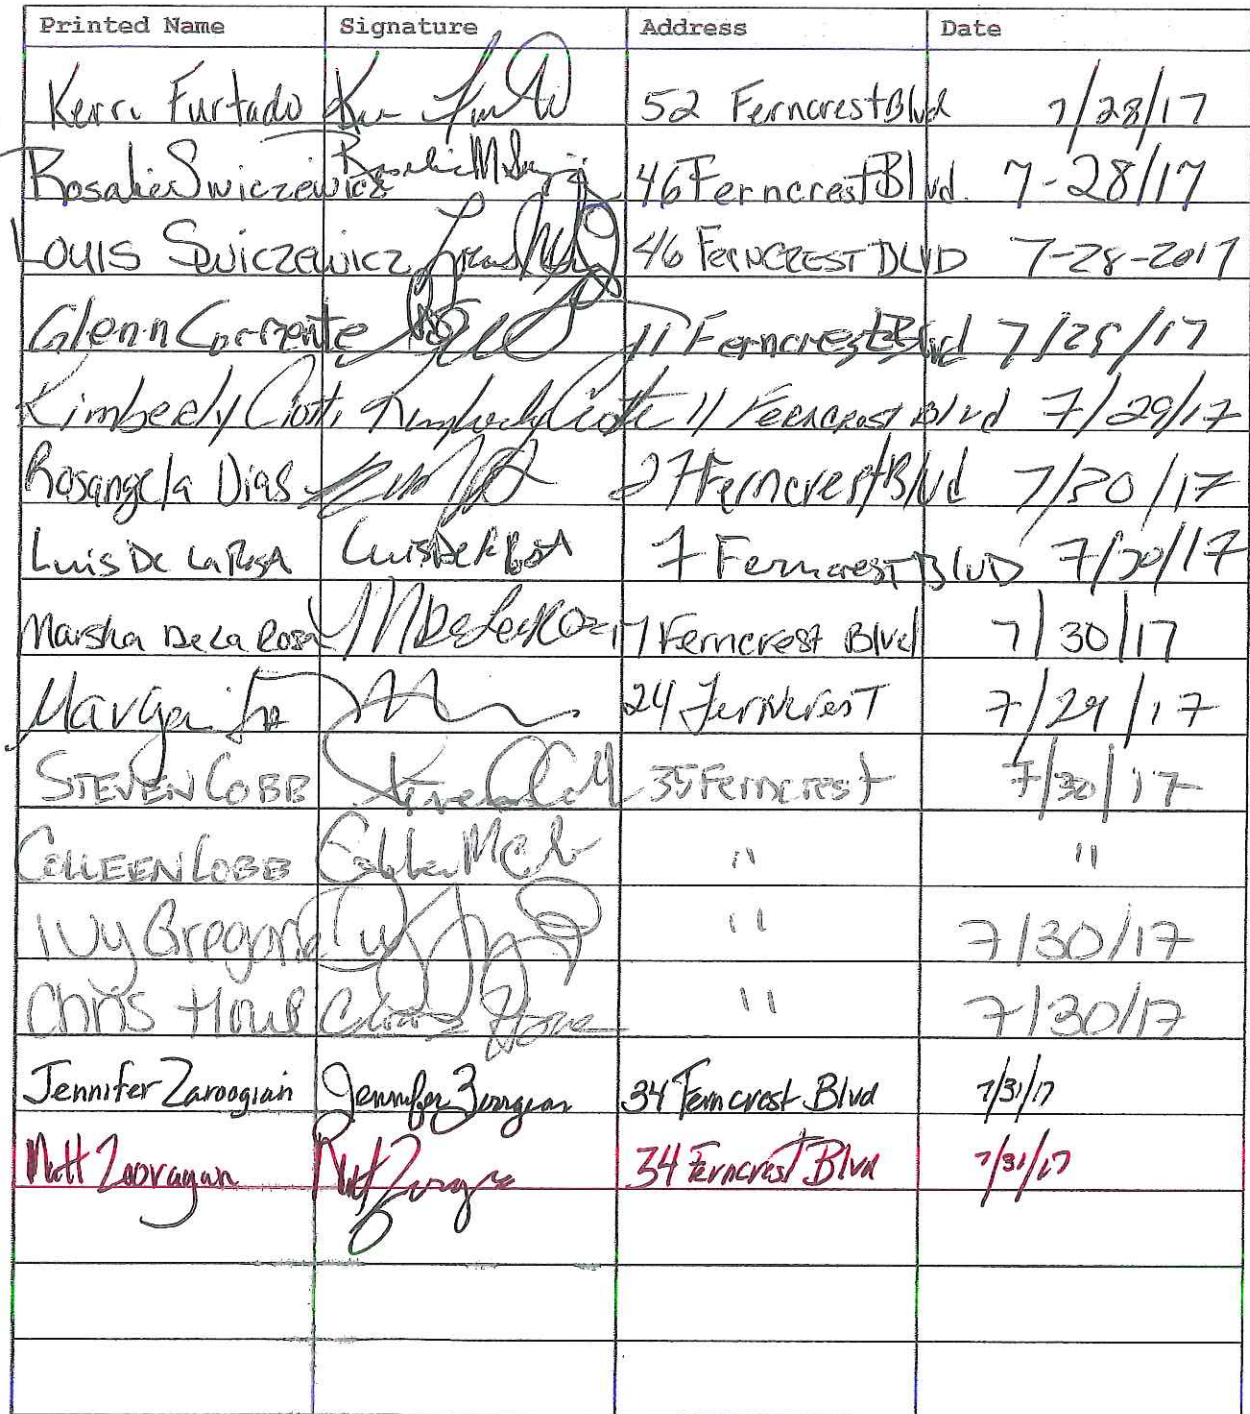 Printed Name Signature Address Date
Kerri Furtado 52 Ferncrest Blvd 7/28/17
Rosalie Swiczewicz Rosalie M 46 Ferncrest Blvd. 7-28/17
Louis Swiczewicz Louis 46 FERNCREST BLVD 7-28-2017
Glenn Corrente 11 Ferncrest Blvd 7/29/17
Kimberly Kimberly 11 Ferncrest Blvd 7/29/17
Rosangela Dias 27 Ferncrest Blvd 7/30/17
Luis De La Rosa Luis De la Rosa 7 Ferncrest BlvD 7/30/17
Marsha De La Rosa M De La Rosa 17 Ferncrest Blvd 7/30/17
24 Ferncrest 7/29/17
STEVEN COBB Steven 35 Ferncrest 7/30/17
COLLEEN COBB " "
Ivy " 7/30/17
Chris Chris " 7/30/17
Jennifer Zaroogian Jennifer Zaroogian 34 Ferncrest Blvd 7/31/17
Matt Matt 34 Ferncrest Blvd 7/31/17